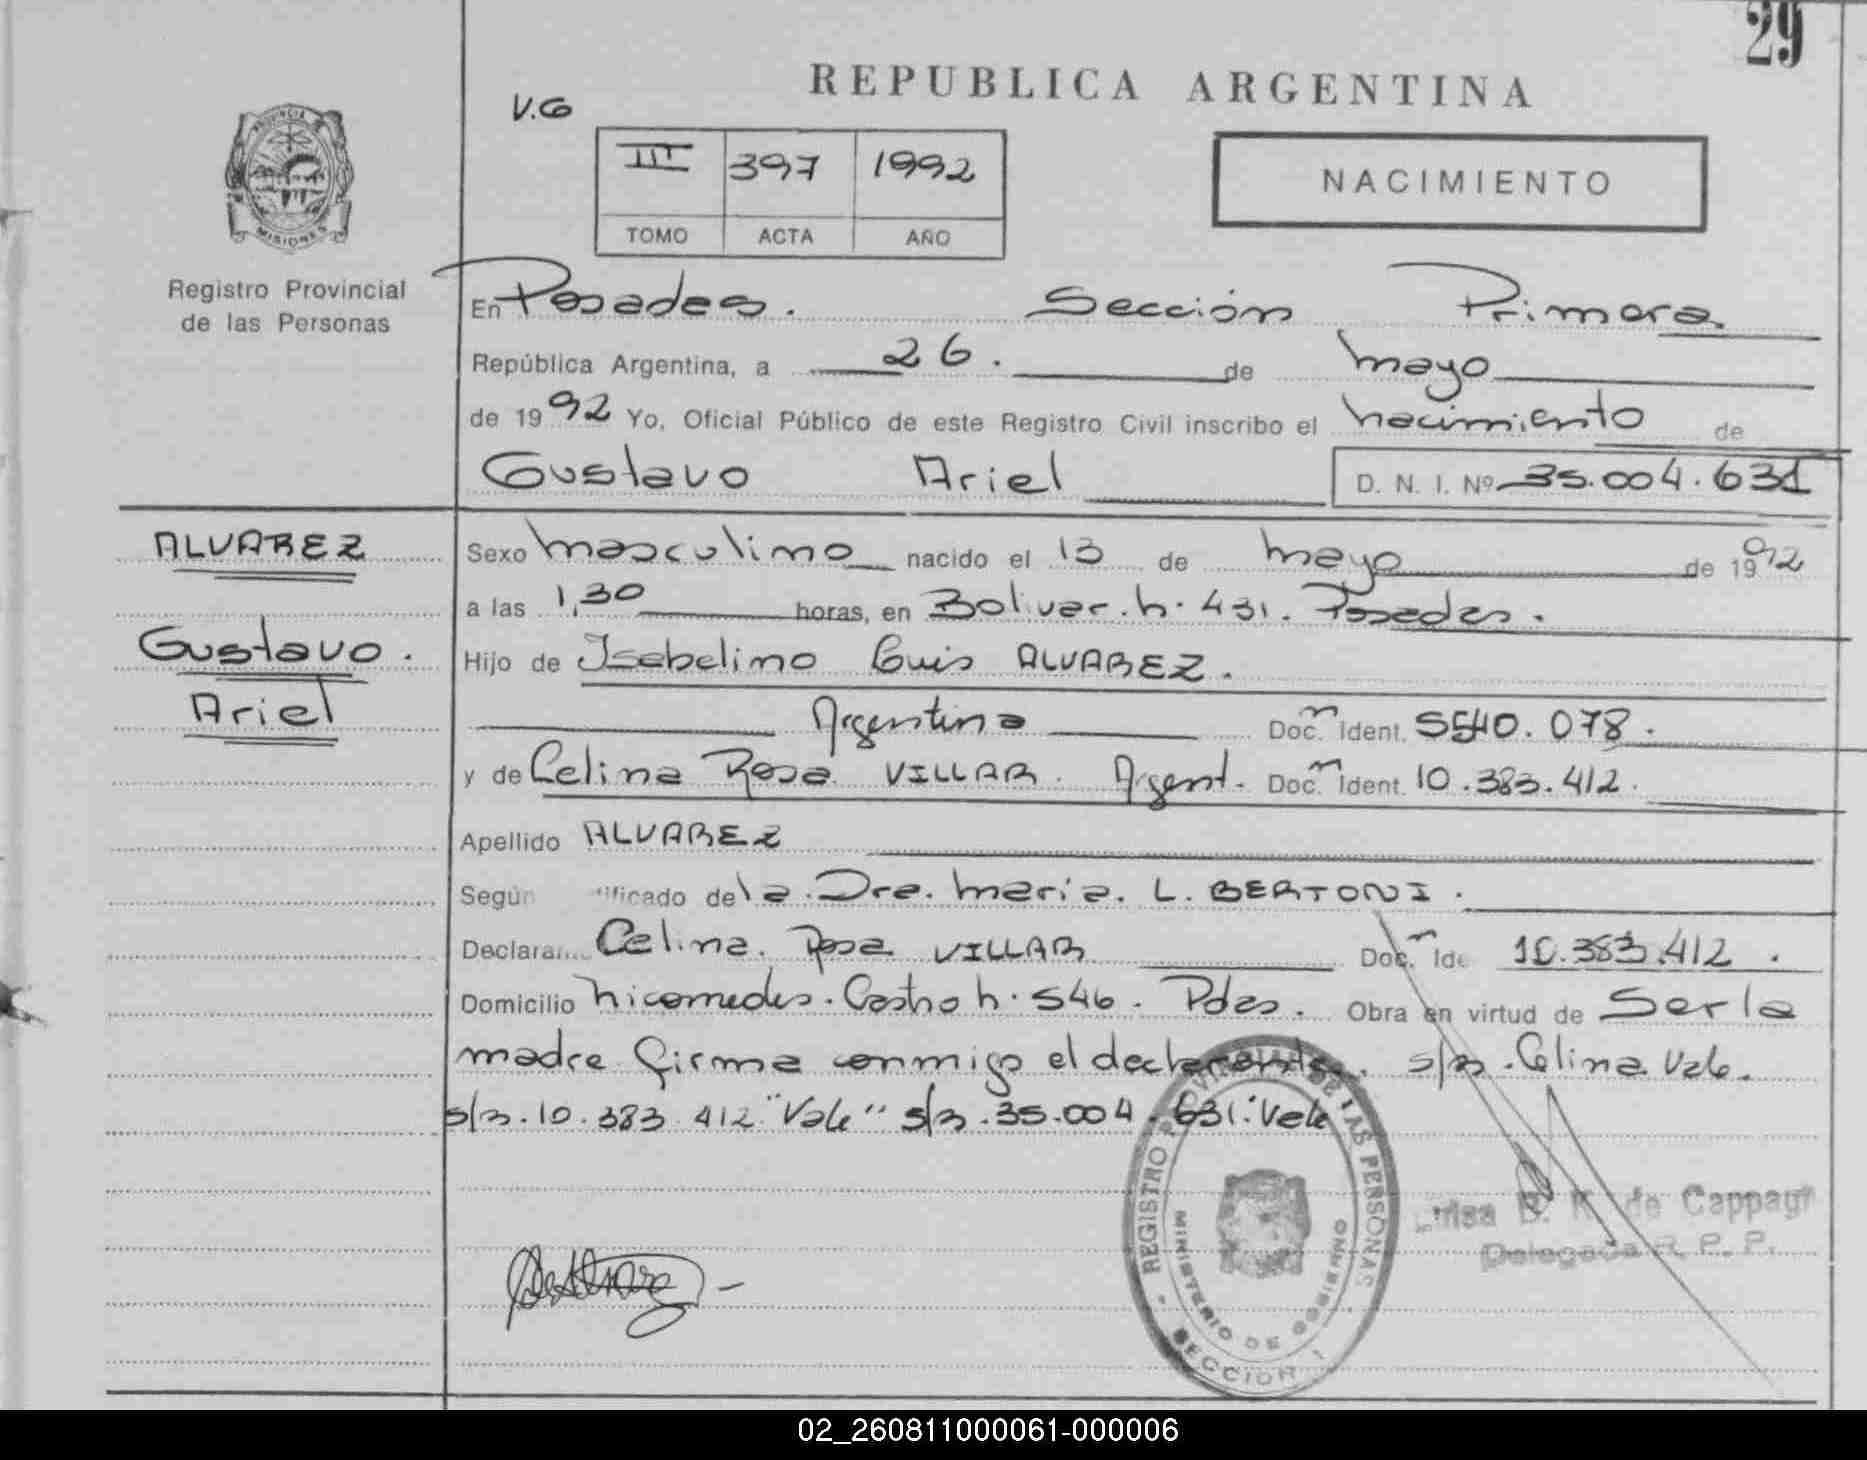 29
REPUBLICA ARGENTINA
V.G
III 397 1992
TOMO ACTA AÑO
NACIMIENTO
PROVINCIA DE
MISIONES
Registro Provincial
de las Personas
En Posadas. Sección Primera
República Argentina, a 26. de mayo
de 1992 Yo, Oficial Público de este Registro Civil inscribo el nacimiento de
Gustavo Ariel D. N. I. Nº 35.004.631
ALVAREZ
Gustavo.
Ariel
Sexo masculino nacido el 13 de mayo de 1992
a las 1,30 horas, en Bolivar. n. 431. Posadas.
Hijo de Isabelino Luis ALVAREZ.
Argentino Doc. Ident. 5540.078.
y de Celina Rosa VILLAR. Argent. Doc. Ident. 10.383.412.
Apellido ALVAREZ
Según ificado de la Dra. Maria. L. BERTONI.
Declaran Celina. Rosa VILLAR Doc. Ide 10.383.412.
Domicilio Nicomedes. Castro n. 546. Pdas. Obra en virtud de Ser la
madre firma conmigo el declarante. s/r. Celina Vale.
s/r. 10.383.412 "Vale" s/r. 35.004.631: Vale
REGISTRO PROVINCIAL DE LAS PERSONAS
MINISTERIO DE GOBIERNO
SECCION 1
de Cappagr
Delegada R. P. P.
02_260811000061-000006